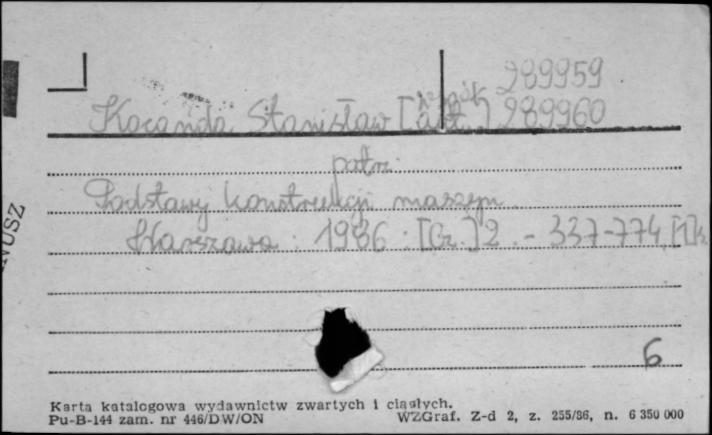 289959
Kocanda Stanisław [aut.] 289960
patrz
Podstawy konstrukcji maszyn.
Warszawa : 1986 : [Cz.] 2. - 337-774, [1] k.
6
NUSZ
Karta katalogowa wydawnictw zwartych i ciągłych.
Pu-B-144 zam. nr 446/DW/ON WZGraf. Z-d 2, z. 255/86, n. 6 350 000